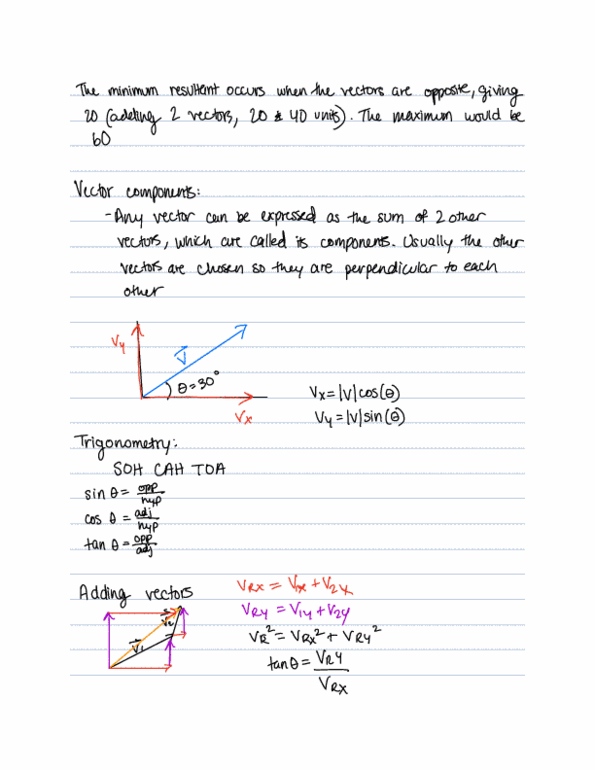 The minimum resultant occurs when the vectors are opposite, giving
20 (adding 2 vectors, 20 & 40 units). The maximum would be
60
Vector components:
- Any vector can be expressed as the sum of 2 other
vectors, which are called its components. Usually the other
vectors are chosen so they are perpendicular to each
other
Vy
V
θ=30°
Vx
Vx=|V|cos(θ)
Vy=|V|sin(θ)
Trigonometry:
SOH CAH TOA
sin θ = opp/hyp
cos θ = adj/hyp
tan θ = opp/adj
Adding vectors
VRx = V1x + V2x
VRy = V1y + V2y
VR² = VRx² + VRy²
tanθ = VRy/VRx
V1
V2